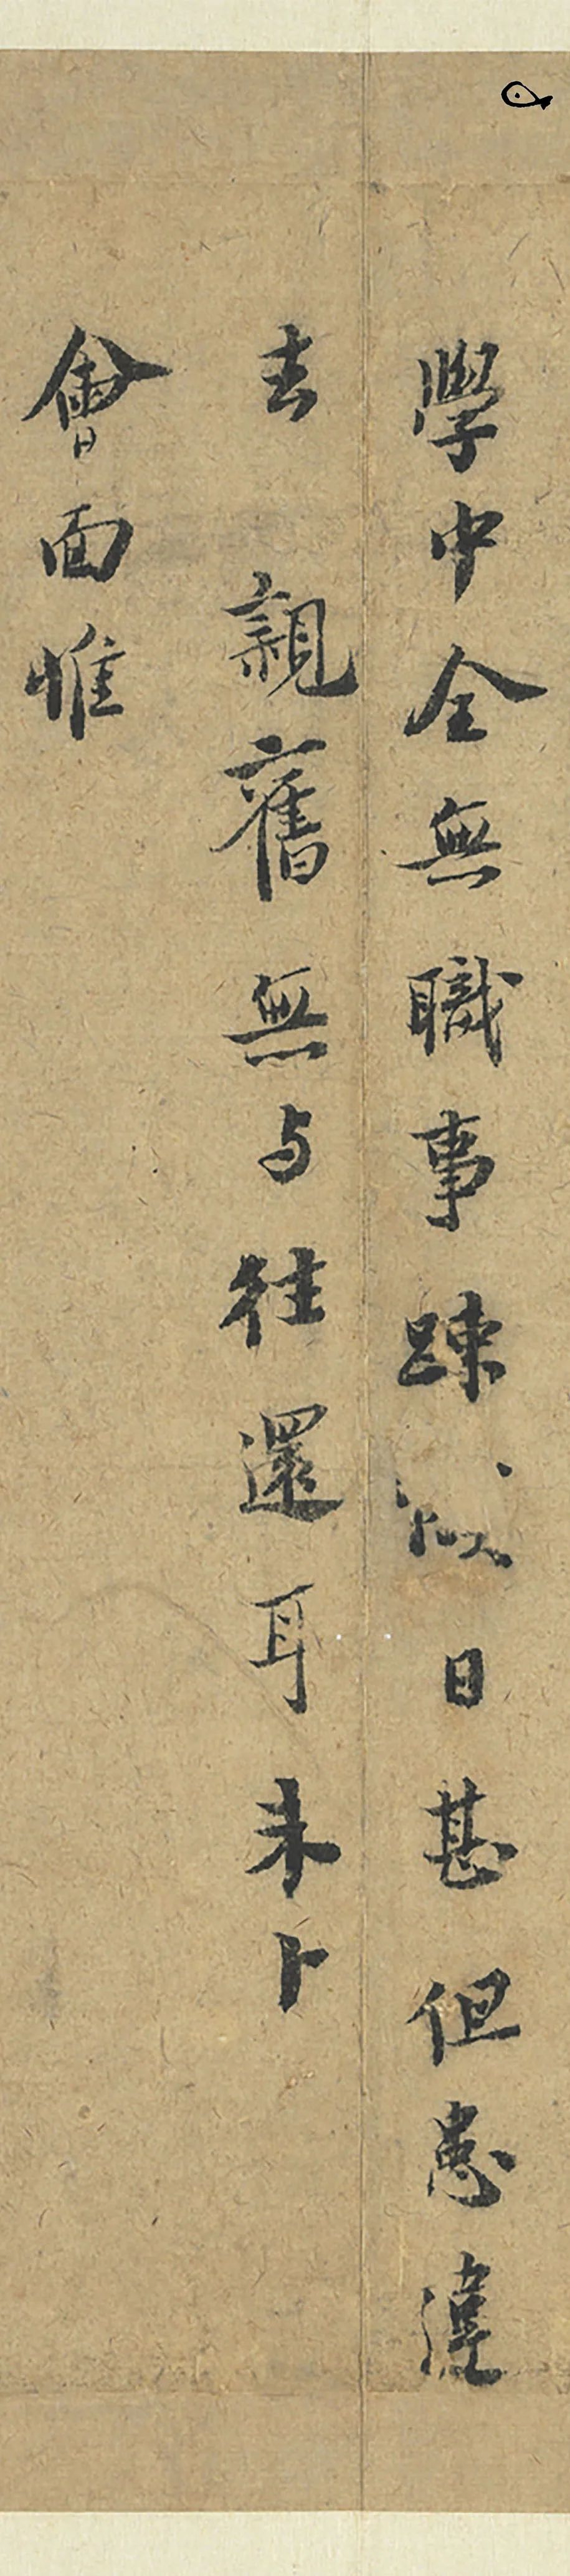 學中全無職事踈日甚但患違
去 親舊無与往還耳未卜
會面惟